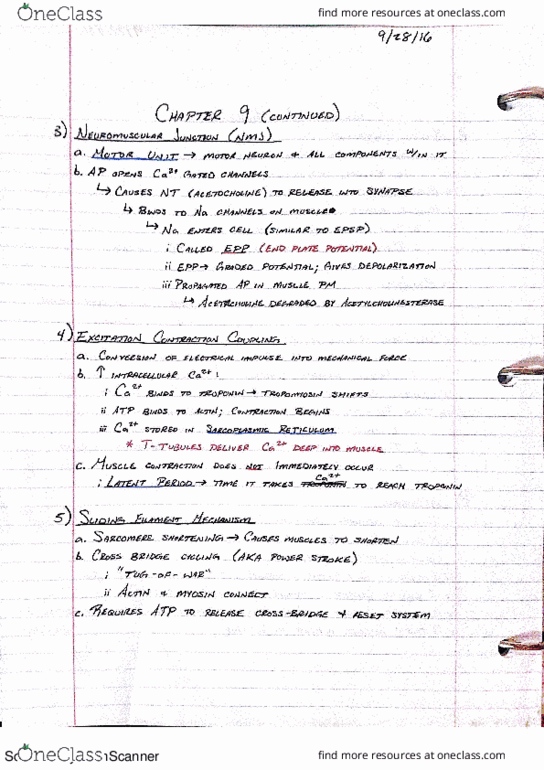 OneClass
find more resources at oneclass.com
9/28/16
CHAPTER 9 (CONTINUED)
3) NEUROMUSCULAR JUNCTION (NMJ)
a. MOTOR UNIT → MOTOR NEURON & ALL COMPONENTS W/IN IT
b. AP OPENS Ca2+ GATED CHANNELS
↳ CAUSES NT (ACETOCHOLINE) TO RELEASE INTO SYNAPSE
↳ BINDS TO Na CHANNELS ON MUSCLE
↳ Na ENTERS CELL (SIMILAR TO EPSP)
i CALLED EPP (END PLATE POTENTIAL)
ii EPP → GRADED POTENTIAL; GIVES DEPOLARIZATION
iii PROPAGATED AP IN MUSCLE PM
↳ ACETYLCHOLINE DEGRADED BY ACETYLCHOLINESTERASE
4) EXCITATION CONTRACTION COUPLING
a. CONVERSION OF ELECTRICAL IMPULSE INTO MECHANICAL FORCE
b. ↑ INTRACELLULAR Ca2+:
i Ca2+ BINDS TO TROPONIN → TROPOMIOSIN SHIFTS
ii ATP BINDS TO ACTIN; CONTRACTION BEGINS
iii Ca2+ STORED IN SARCOPLASMIC RETICULUM
* T-TUBULES DELIVER Ca2+ DEEP INTO MUSCLE
c. MUSCLE CONTRACTION DOES NOT IMMEDIATELY OCCUR
i LATENT PERIOD → TIME IT TAKES TROPONIN Ca2+ TO REACH TROPONIN
5) SLIDING FILAMENT MECHANISM
a. SARCOMERE SHORTENING → CAUSES MUSCLES TO SHORTEN
b. CROSS BRIDGE CYCLING (AKA POWER STROKE)
i "TUG-OF-WAR"
ii ACTIN & MYOSIN CONNECT
c. REQUIRES ATP TO RELEASE CROSS-BRIDGE & RESET SYSTEM
OneClass
Scanner
find more resources at oneclass.com